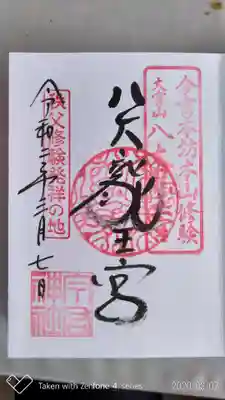 今宮本坊本山修験
大宮山
八大龍王宮
秩父修験発祥の地
令和二年三月七日
神社
Taken with Zenfone 4 series
2020-03-07